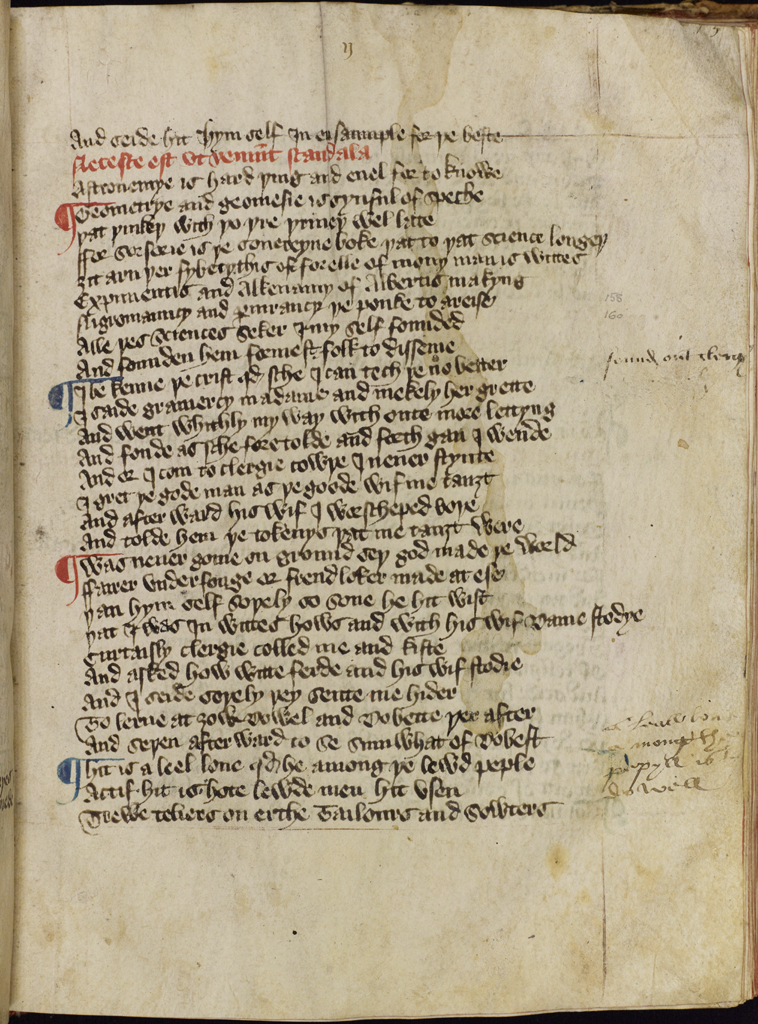 And seide hit hym self In ensaumple for þe beste
Necesse est vt veniant scandala
Astronemye is hard þing and euel for to knowe
Geometrye and geomesie is gynful of speche
þat þinkeþ with þo þre þriueþ wel late
ffor sorserie is þe souereyne boke þat to þat science longeþ
ȝit arn þer fybecychis of forelle of mony man is wittes
Experimentis and Alkenamy of Albertis makyng
Nigromancy and perimancy þe pouke to areise
Alle þes sciences seker I my self founded
And founden hem formest folk to disseiue
I be kenne þe crist qd sche I can tech þe no better
I saide gramercy madame and mekely her grette
And went whithly my way with oute more lettyng
And fonde as sche fore tolde and forth gan I wende
And er I com to clergie cowþe I neuer stynte
I gret þe gode man as þe goode wif me tauȝt
And after ward his wif I worscheped boþe
And tolde hem þe tokenys þat me tauȝt were
Was neuer gome on ground seþ god made þe world
ffairer vnderfonge or frendloker made at ese
þan hym self soþely so sone he hit wist
þat I was In wittes hows and with his wif dame stodye
Curtaisly clergie colled me and kiste
And asked how witte ferde and his wif stodie
And I seide soþely þey sente me hider
To lerne at ȝow dowel and dobette þer after
And seþen after ward to se sum what of dobest
hit is a leel loue qd he among þe lewd peple
Actif hit is hote lewde men hit vsen
Trewe teliers on erthe Tailours and sowters
158
160
found out
dowell